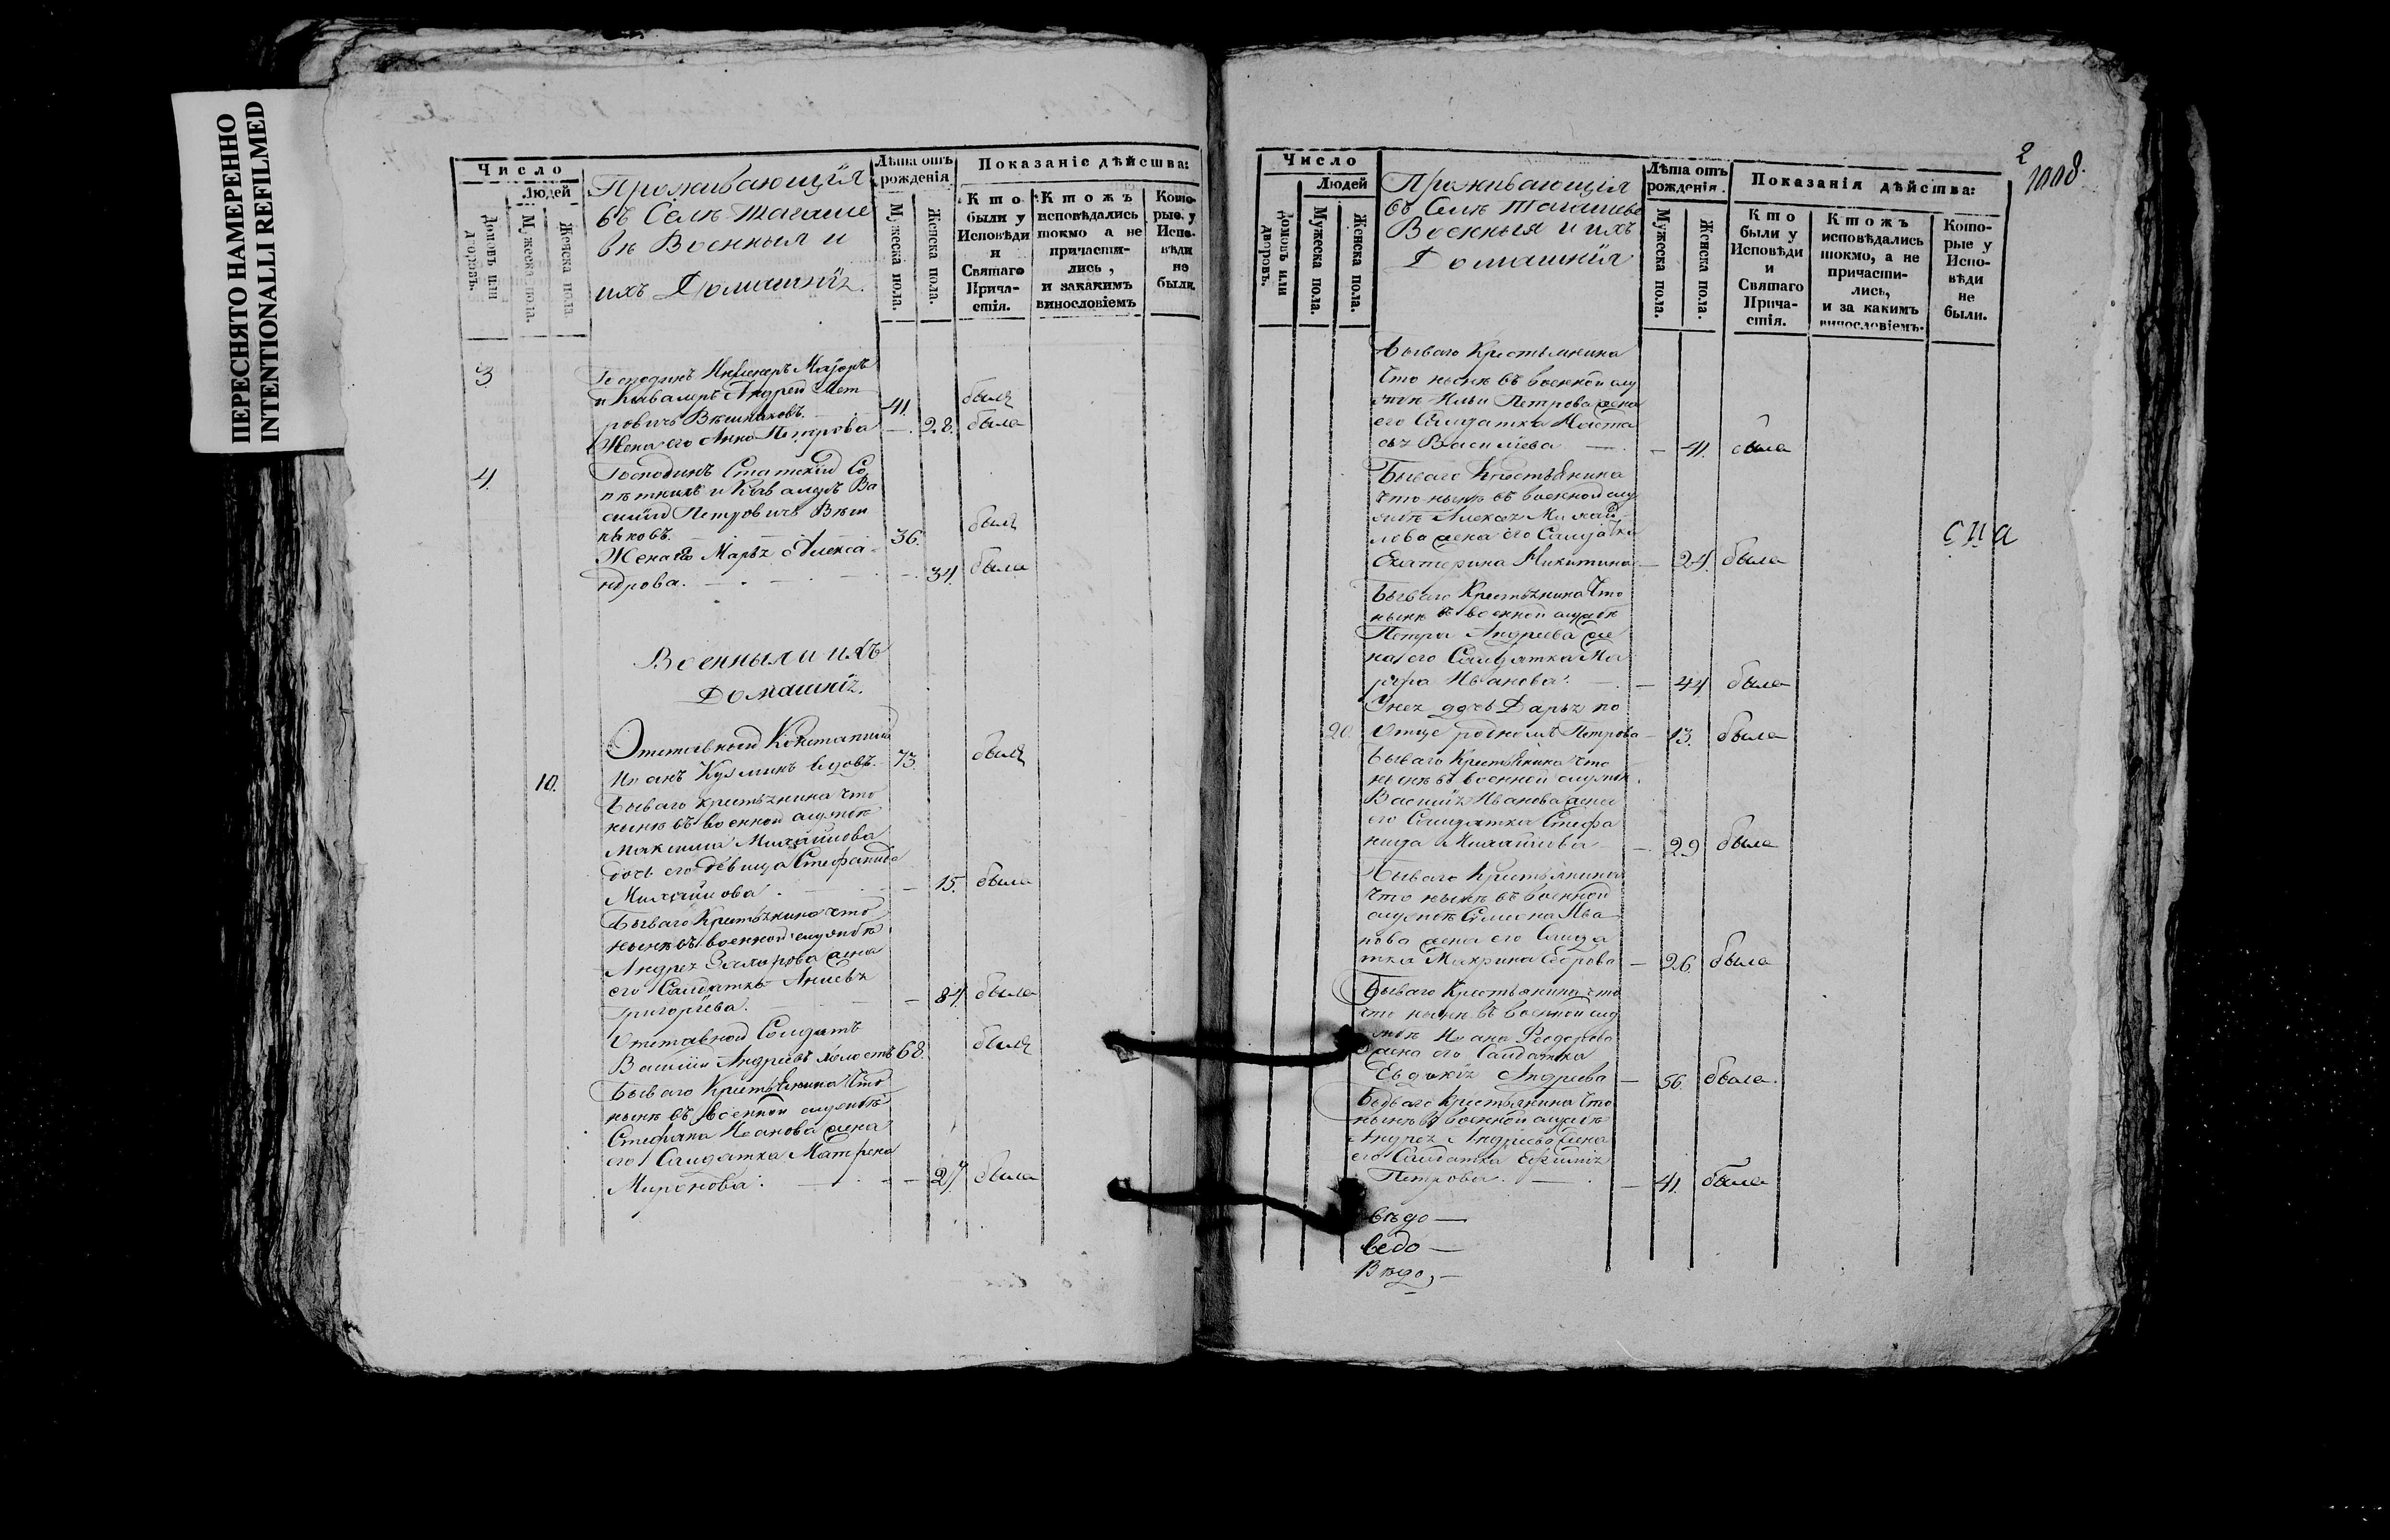 ПЕРЕСНЯТО НАМЕРЕННО
INTENTIONALLI REFILMED
Число
Людей
Домовъ или дворовъ.
Мужеска пола.
Женска пола.
Проживающія
въ Селѣ Тогаше
вѣ Военныя и
ихъ Домашніѧ.
Лѣта отъ рожденія
Мужеска пола.
Женска пола.
Показаніе дѣйства:
Кто были у Исповѣди и Святаго Прича-стія.
Ктожъ исповѣдались токмо а не причасти-лись, и закакимъ винословіемъ
Кото-рые у Испо-вѣди не были.
3
Господинъ Инженеръ Маіоръ
и Кавалеръ Андрей Пет
ровичъ Вѣшняковъ 41. былъ
Жена его Анна Петрова — 28. была
4.
Господинъ Статскій Со
вѣтникъ и Кавалеръ Ва
силій Петровичъ Вѣш
няковъ. 36. былъ
Жена его Марьѧ Алекса
ндрова. — 34. была
Военныя и ихъ
Домашніѧ.
Отставный
10.
Иванъ Кузминъ вдовъ. 73. былъ
Бываго крестьѧнина что
нынѣ въ военной службѣ
Максима Михайлова
дочь его девица Стефанида
Михайлова. — 15. была
Бываго Крестьѧнина что
нынѣ въ военной службѣ
Андреѧ жена
его Салдатка
Григоріева. — 84. была
Отставной Солдатъ
Василій Андреевъ холостъ 68. былъ
Бываго Крестьянина что
нынѣ въ военной службѣ
Стефана Иванова жена
его Салдатка Матрена
Миронова. — 27. была
2
1008.
Число
Людей
Домовъ или дворовъ.
Мужеска пола.
Женска пола.
Проживающія
въ Селѣ Тогашеве
Военныя и ихъ
Домашнія
Лѣта отъ рожденія.
Мужеска пола.
Женска пола.
Показанія дѣйства:
Кто были у Исповѣди и Святаго Прича-стія.
Ктожъ исповѣдались токмо, а не причасти-лись, и за какимъ винословіемъ.
Кото-рые у Испо-вѣди не были.
Бываго Крестьянина
что нынѣ въ военной слу
жбѣ Ильи Петрова жена
его Салдатка Наста
сьѧ Васильева — 41. была
Бываго Крестьянина
что нынѣ въ военной слу
жбѣ Алексеѧ Михай
лова жена его Салдатка
Екатерина Никитина — 24. была
Бываго Крестьѧнина что
нынѣ въ военной службѣ
Петра Андреева же
на его Салдатка Ма
рфа Иванова. — 44 была
У неѧ дочь Дарьѧ по
20. Отцѣ родномъ Петрова — 13. была
Бываго Крестьянина что
нынѣ въ военной службѣ
Василіѧ Иванова жена
его Салдатка Стефа
нида Михайлова — 29 была
Бываго Крестьянина
что нынѣ въ военной
службѣ Симеона Ива
нова жена его Салда
тка Маврина Егорова — 26. была
Бываго Крестьянина что
что нынѣ въ военной слу
жбѣ Ивана Феодорова
жена его Салдатка
Евдокіѧ Андреева — 56. была.
Бываго Крестьянина что
нынѣ въ военной службѣ
Андреѧ Андреева жена
его Салдатка Ефиміѧ
Петрова. — 41. была
вѣдо —
ведо —
Вѣдо, —